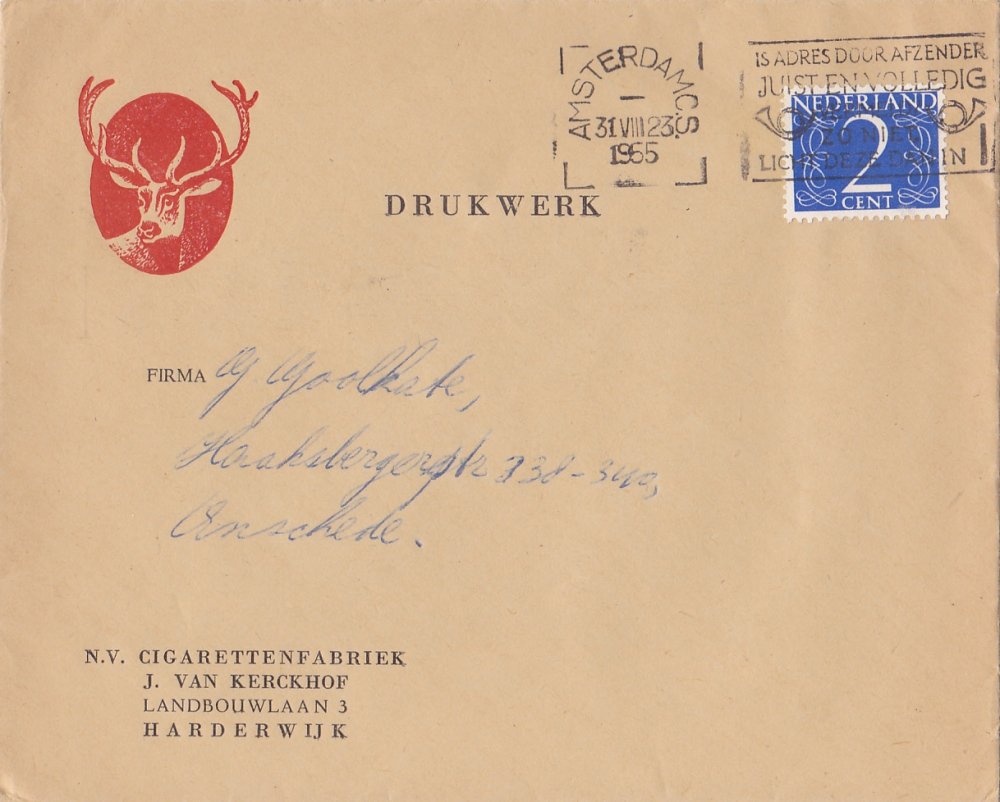 AMSTERDAM C.S.
31 VIII 23
1955
IS ADRES DOOR AFZENDER
JUIST EN VOLLEDIG
ZO NIET
LICHT DEZE DAN IN
NEDERLAND
2
CENT
DRUKWERK
FIRMA G. Goolkate,
Haaksbergerstr 338-340,
Enschede.
N.V. CIGARETTENFABRIEK
J. VAN KERCKHOF
LANDBOUWLAAN 3
HARDERWIJK